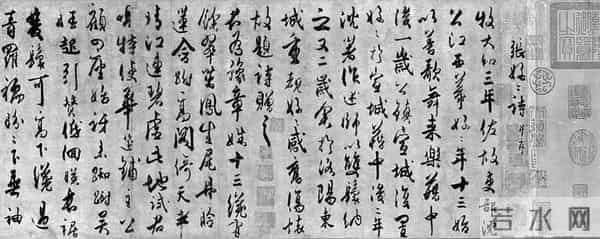 張好〻詩 并序
牧大和三年佐故吏部沈
公江西幕好〻年十三始
以善歌舞来樂籍中
後一歲公鎮宣城復置
好〻於宣城籍中後二年
沈著作述師以雙鬟納
之又二歲余於洛陽東
城重覩好〻感舊傷懷
故題詩贈之
君為豫章姝十三纔有
餘翠茁鳳生尾丹臉
蓮含跗高閣倚天半
江連碧虛此地試君
唱特使華筵鋪主公
顧四座始訝来踟蹰吳
娃起引贊低佪映長裾
雙鬟可高下纔過
青羅襦盼〻下垂袖
若水网